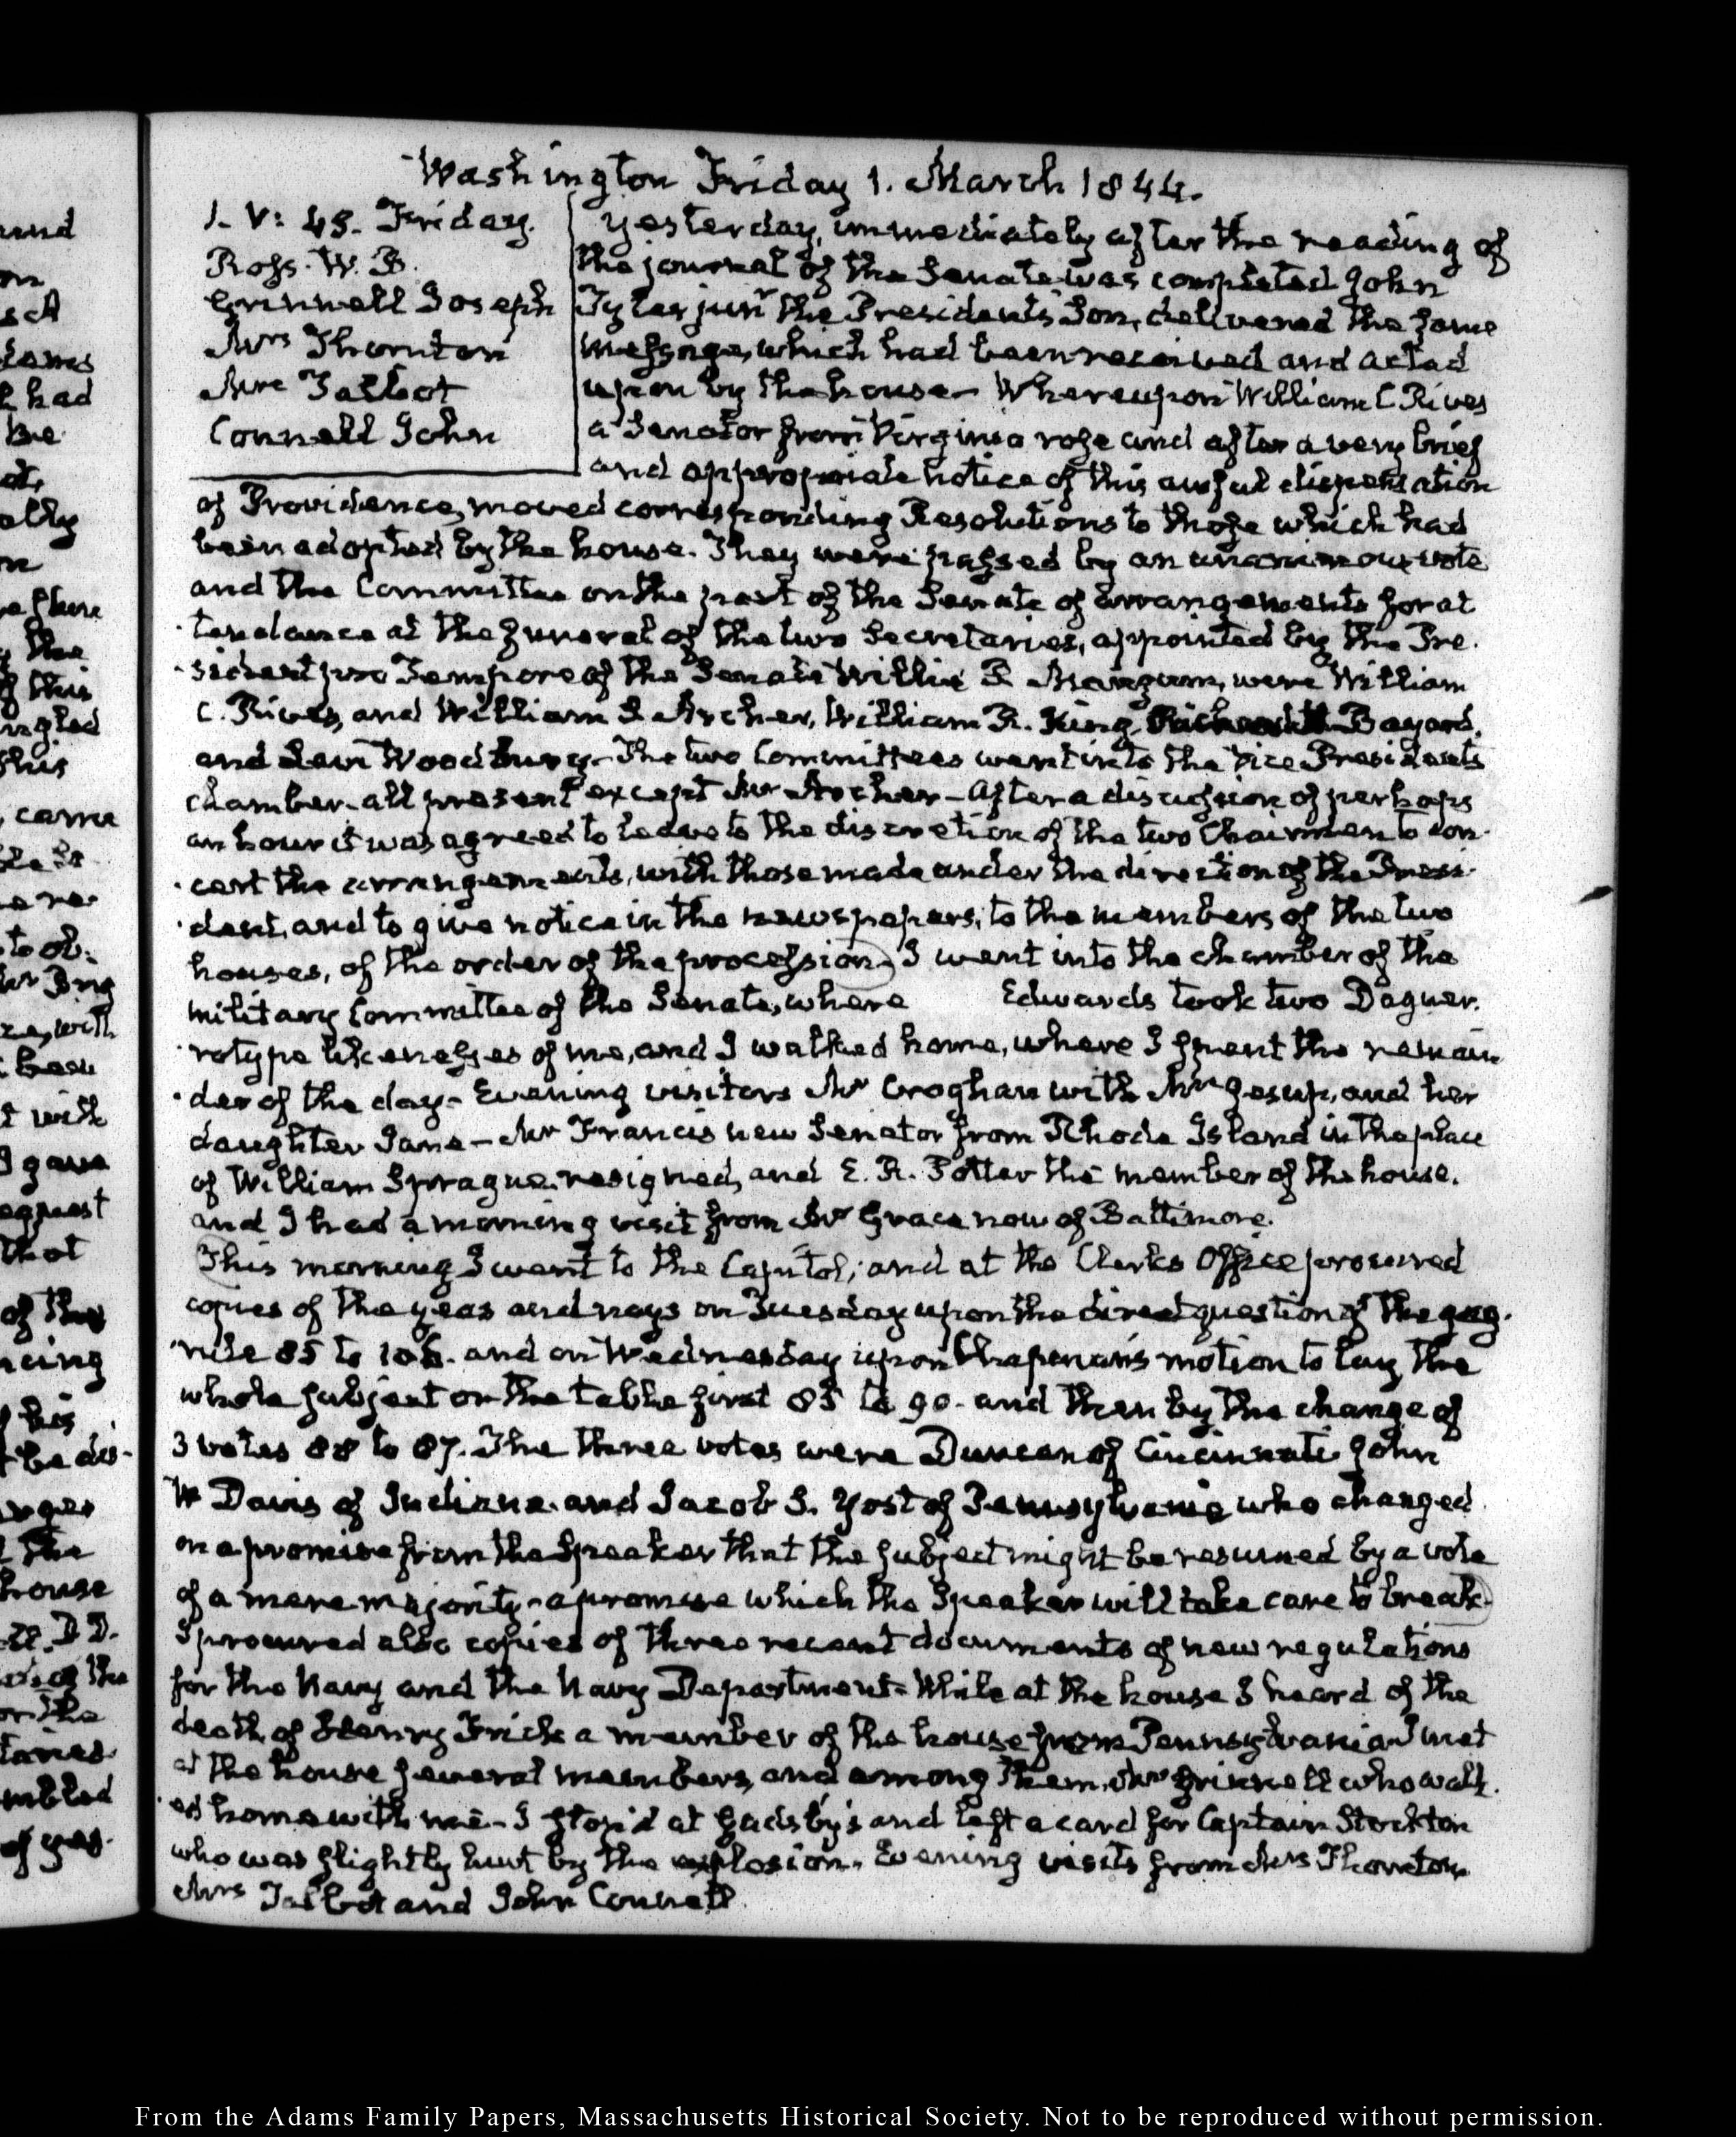 Washington Friday 1. March 1844.
1. V: 45. Friday.
Ross. W. B.
Grinnell Joseph
Mrs Thornton
Mrs Talbot
Connell John
Yesterday, immediately after the reading of
the journal of the Senate was completed John
Tyler junr the President's Son, delivered the same
message, which had been received and acted
upon by the house— Whereupon William C Rives
a Senator from Virginia rose and after a very brief
and appropriate notice of this awful dispensation
of Providence, moved corresponding Resolutions to those which had
been adopted by the house. They were passed by an unanimous vote
and the Committee on the part of the Senate of arrangements for at
tendance at the funeral of the two Secretaries, appointed by the Pre.
sident pro Tempore of the Senate Willie P. Mangum, were William
C. Rives, and William S. Archer, William R. King, Bayard,
and Levi Woodbury. The two Committees went into the Vice-Presidents
chamber—all present except Mr Archer—After a discussion of perhaps
an hour it was agreed to leave to the discretion of the two Chairmen to con-
cert the arrangements, with those made under the direction of the Presi-
dent, and to give notice in the newspapers, to the members of the two
houses, of the order of the procession—I went into the chamber of the
military Committee of the Senate, where Edwards took two Daguer.
rotype likenesses of me, and I walked home, where I spent the remain
der of the day— Evening visitors Mr Croghan with Mrs Jesup, and her
daughter Jane—Mr Francis new Senator from Rhode Island in the place
of William Sprague resigned, and E. R. Potter the member of the house.
and I had a morning visit from Mr Grace now of Baltimore.
This morning I went to the Capitol; and at the Clerks Office procured
copies of the yeas and nays on Tuesday upon the direct question of the gag-
rule 85 to 106. and on Wednesday upon Chapman's motion to lay the
whole subject on the table first 85 to 90. and then by the change of
3 votes 88 to 87. The three votes were Duncan of Cincinnati John
W Davis of Indiana and Jacob S. Yost of Pennsylvania who changed
on a promise from the Speaker that the subject might be resumed by a vote
of a mere majority—a promise which the Speaker will take care to break—
I procured also copies of three recent documents of new regulations
for the Navy and the Navy Department— While at the house I heard of the
death of Henry Frick a member of the house from Pennsylvania I met
at the house several members, and among them, Mr Grinnell who walk.
ed home with me—I stop'd at Gadsby's and left a card for Captain Stockton
who was slightly hurt by the explosion. Evening visits from Mrs Thornton
Mrs Talbot and John Connell
From the Adams Family Papers, Massachusetts Historical Society. Not to be reproduced without permission.